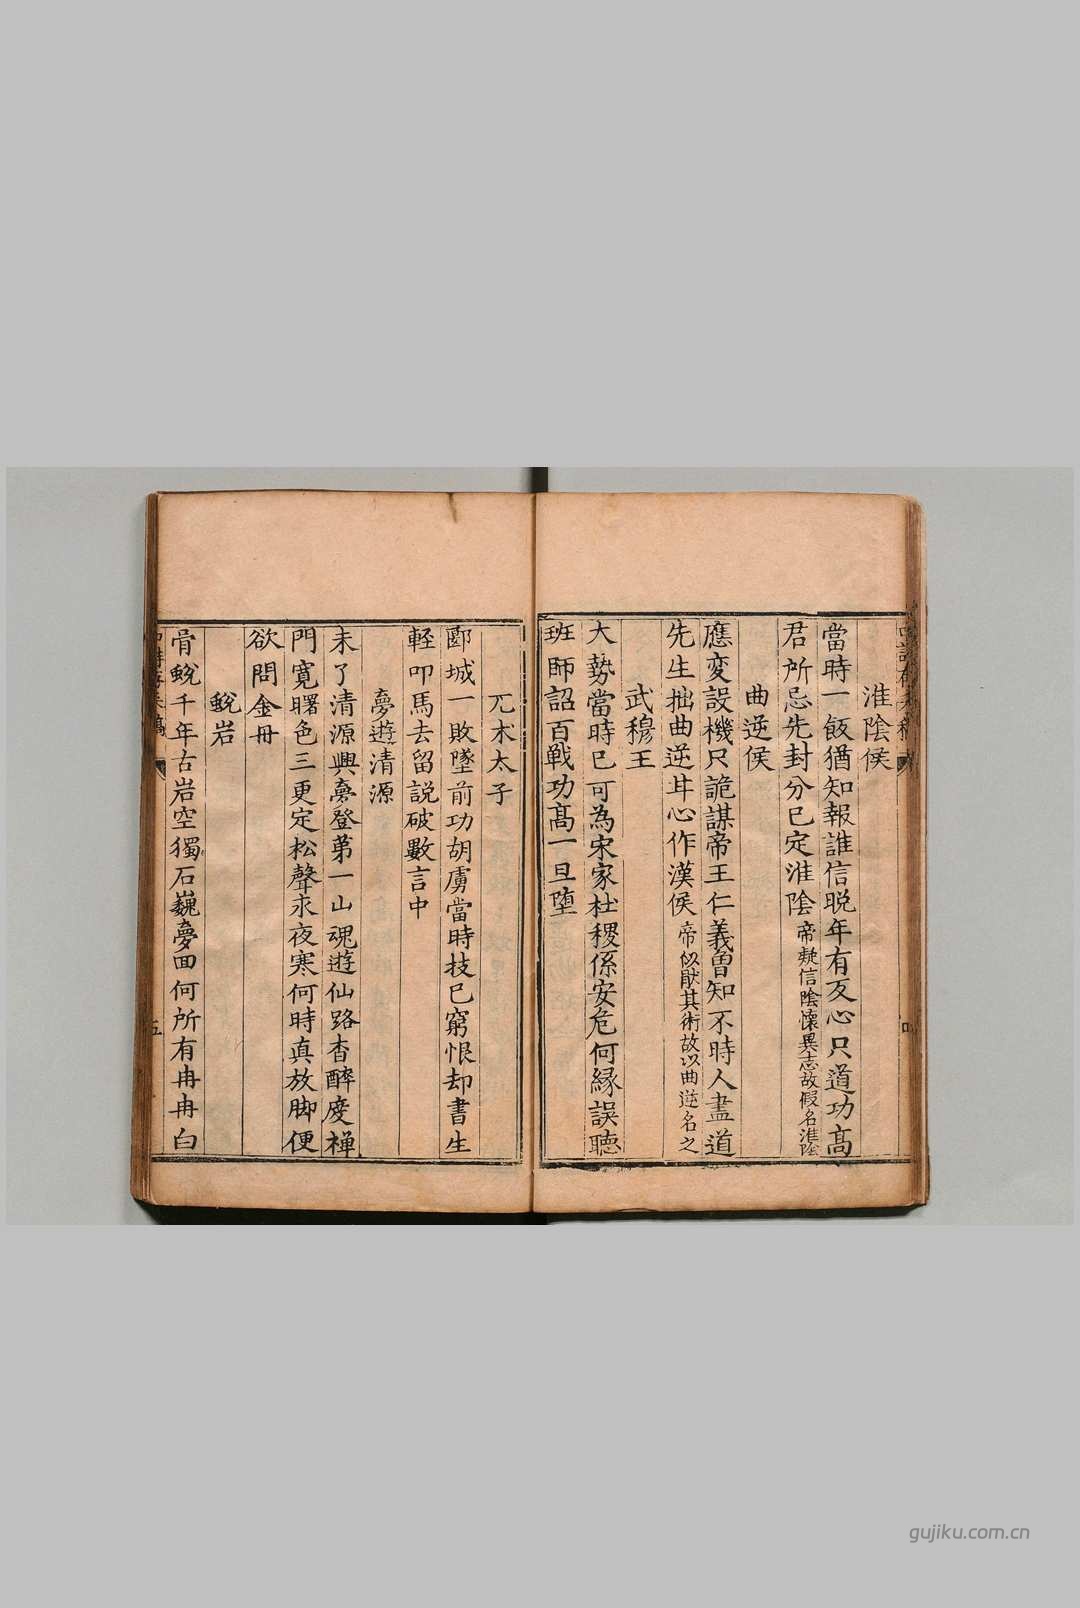 淮陰侯
當時一飯猶知報誰信晩年有反心只道功髙
君所忌先封分已定淮陰帝疑信陰懷異志故假名淮陰
曲逆侯
應変設機只詭謀帝王仁義曽知不時人盡道
先生拙曲逆甘心作漢侯帝似猒其術故以曲逆名之
武穆王
大勢當時已可為宋家社稷係安危何縁誤聴
班師詔百戰功髙一旦墮
兀朮太子
郾城一敗墜前功胡虜當時技已窮恨却書生
軽叩馬去留說破數言中
夢遊清源
未了清源興夢登第一山魂遊仙路杳醉度禅
門寛曙色三更定松聲永夜寒何時真放脚便
欲問金丹
蛻岩
骨蛻千年古岩空獨石巍夢回何所有冉冉白
五
gujiku.com.cn